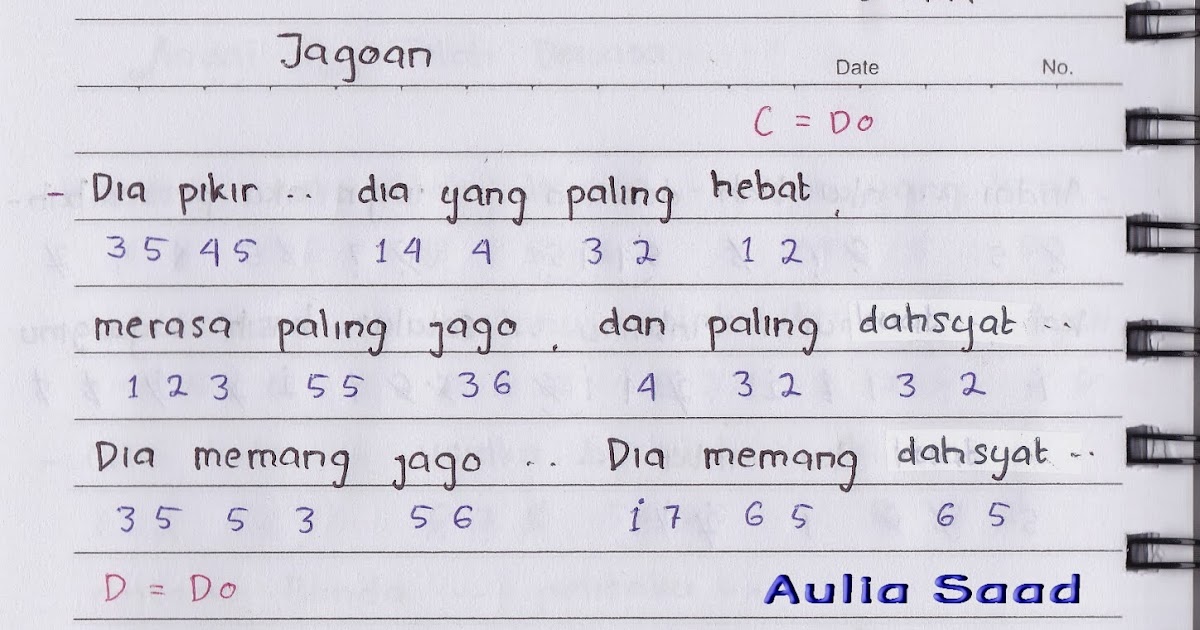 Jagoan
Date No.
C = Do
- Dia pikir... dia yang paling hebat,
3 5 4 5 1 4 4 3 2 1 2
merasa paling jago, dan paling dahsyat...
1 2 3 5 5 3 6 4 3 2 3 2
Dia memang jago... Dia memang dahsyat...
3 5 5 3 5 6 i 7 6 5 6 5
D = Do
Aulia Saad